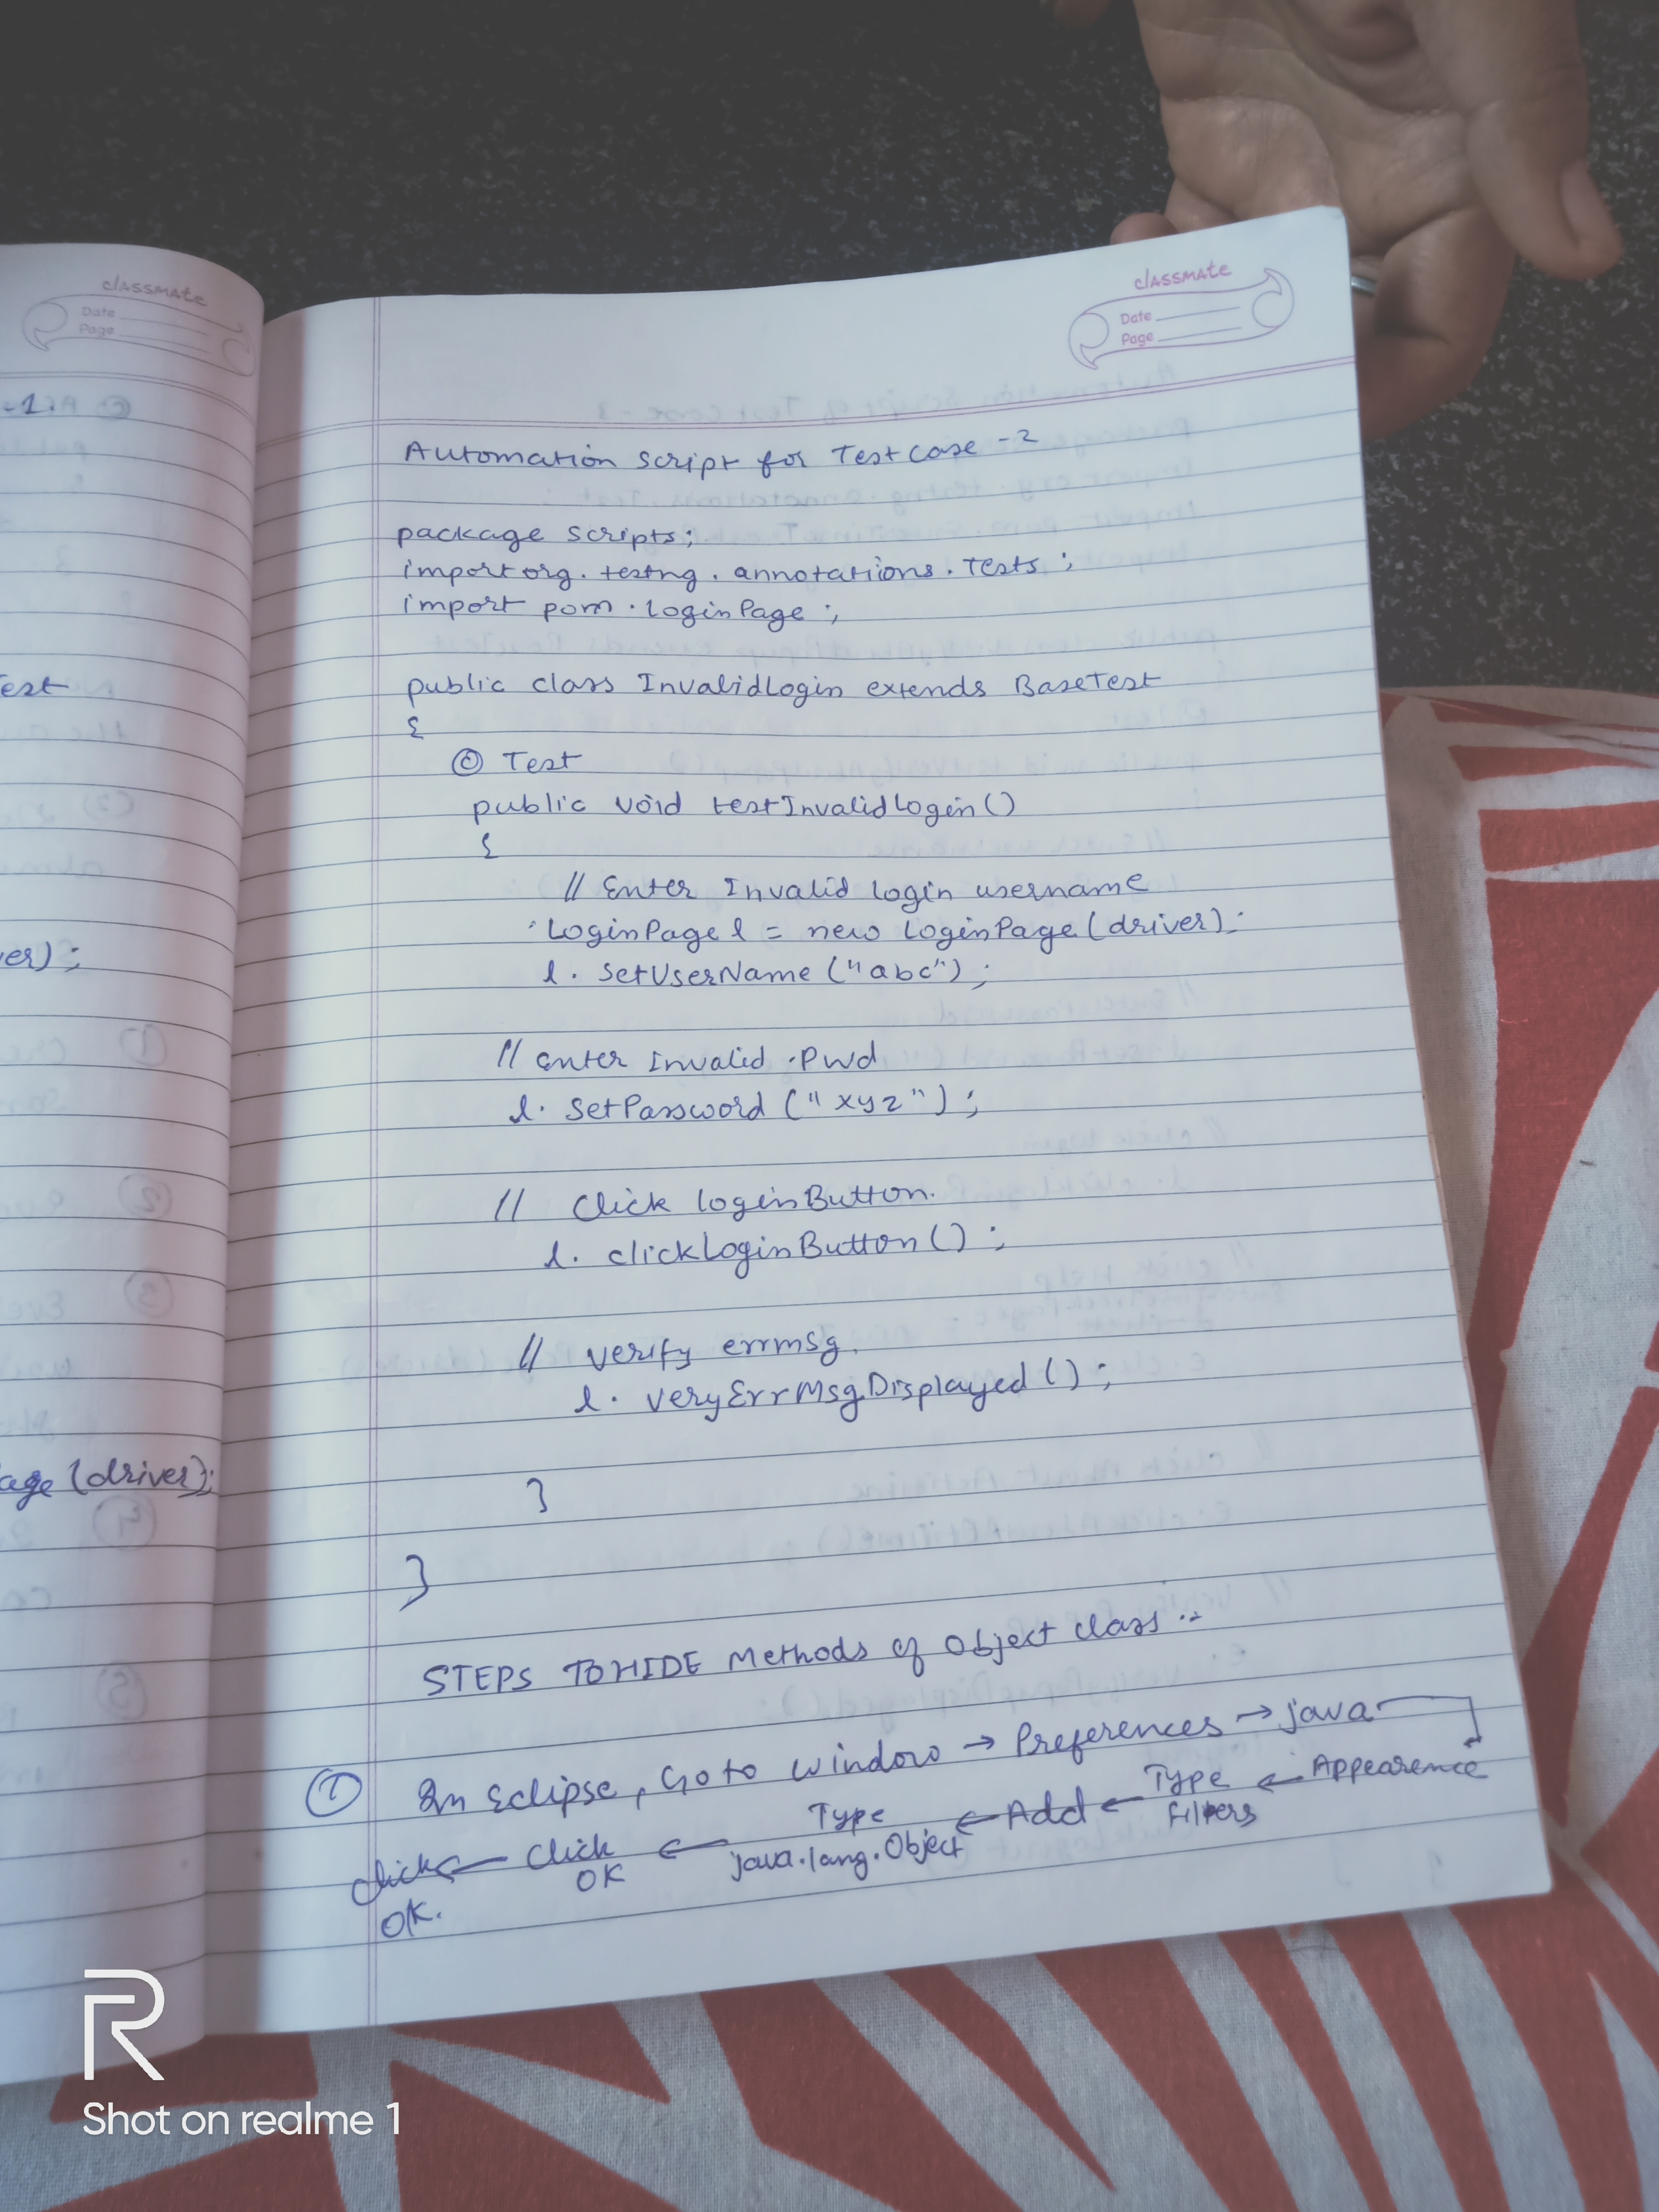 classmate
Date
Page
-1.
Test
ver);
age (driver);
classmate
Date
Page
Automation Script for TestCase -2
package scripts;
import org. testng. annotations. Tests ;
import pom. LoginPage ;
public class InvalidLogin extends BaseTest
{
@ Test
public void testInvalidLogin()
{
// Enter Invalid login username
LoginPage l = new LoginPage (driver);
l. setUserName ("abc");
// Enter Invalid .Pwd
l. SetPassword ("xyz");
// Click loginButton.
l. clickLoginButton();
// verify errmsg.
l. veryErrMsgDisplayed();
}
}
STEPS TO HIDE Methods of Object class :-
① In Eclipse, Go to Window → Preferences → java
Appearence
← Type Filters
← Add
← Type java.lang.Object
← Click OK
← Click OK.
R
Shot on realme 1